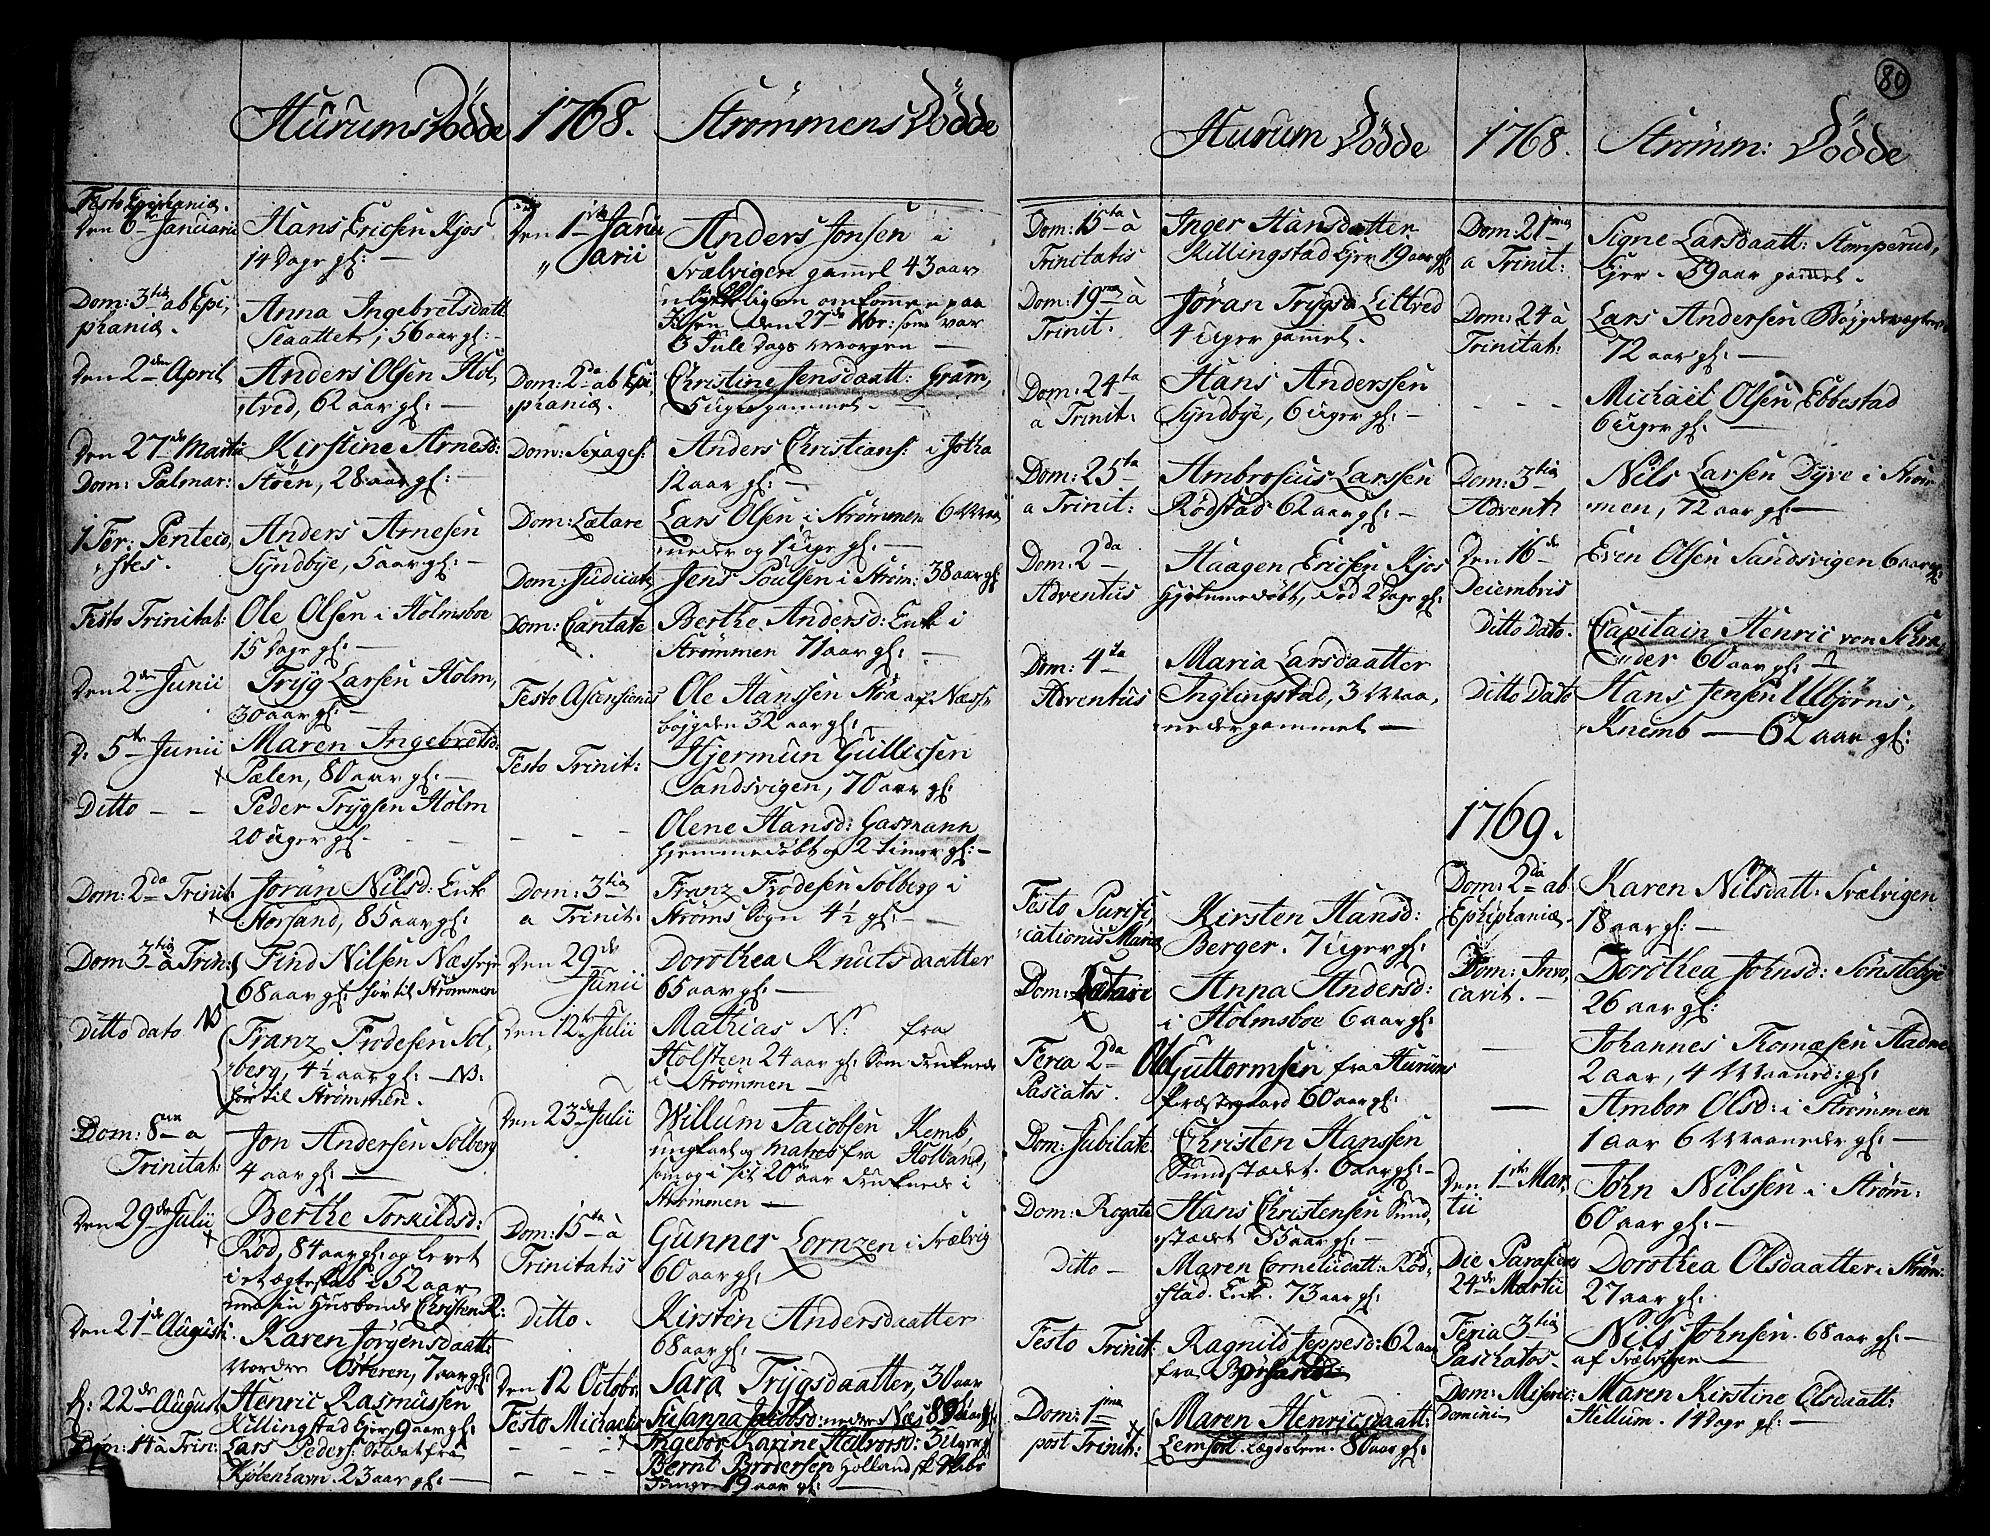 Hurums Dödde
Festo Epiphaniæ.
Den 6te Januarii
Hans Ericsen Kjos
14 Dage gl:
Dom: 3tia ab Epi,
phaniæ.
Anna Ingebretsdatt
Slaattet, 56 aar gl:
Den 2den April
Anders Olsen Hol,
tved, 62 aar gl:
Den 27de Martii
Dom: Palmar:
Kirstine Arnesd:
Støen, 28 aar gl:
1 Fer: Penteco,
stes.
Anders Arnesen
Syndbye, 5 aar gl:
Festo Trinitat:
Ole Olsen i Holmsboe
15 Dage gl:
Den 2den Junii
Tryg Larsen Holm,
30 aar gl:
D. 5te Junii
Maren Ingebretsd:
Pælen, 80 aar gl:
Ditto
Peder Trygsen Holm
20 Uger gl:
Dom: 2da Trinit:
Joran Nilsd: Enk
Storsand, 85 aar gl:
Dom 3tia a Trin:
Find Nilsen Næssøe
68 aar gl: hør til Strømmen
Ditto dato NB
Franz Frodesen Sol,
berg, 4½ aar gl: NB:
hør til Strømmen.
Dom: 8va a
Trinitat:
Jon Andersen Solberg
4 aar gl:
Den 29de Julii
Berthe Torkildsd:
Rød, 84 aar gl: og levet
i et ægteskab i 52 aar
med sin Husbonde Christen R:
Den 21de Augusti.
Karen Jörgensdaatt:
Nordre Østeren, 7 aar gl:
d: 22de August
Henric Rasmussen
Killingstad Ejer 9 aar gl:
Dom: 14 a Trin:
Lars Peders: Soldat fra
Kjøbenhavn. 23 aar gl:
1768.
Strømmens Dödde
Den 1ste Janu
arii
Anders Jonsen i
Svælvigen gammel 43 aar
ulykkeligen omkommen paa
Isen den 27de Xbr: som var
3 Jule Dags Morgen
Dom: 2da ab Epi,
phaniæ.
Christine Jensdaatt: Gram,
5 uger gammel.
Dom: Sexages:
Anders Christians: i Jotha
12 aar gl:
Dom: Lætare
Lars Olsen i Strømmen 6 Maa
neder og 1 Uge gl:
Dom: Judica
Jens Poulsen i Strøm: 38 aar gl
Dom: Cantate
Berthe Andersd: Enk i
Strømmen 71 aar gl:
Festo Ascensionis
Ole Hanssen Moa af Næss
bøygden 32 aar gl:
Festo Trinit:
Hjermun Gullicsen
Sandsvigen, 70 aar gl:
Olene Hansd: Gasmann
hjemmedøbt og 2 timer gl:
Dom: 3tia
a Trinit:
Franz Frodesen Solberg i
Strøms Sogn 4½ gl:
Den 29de
Junii
Dorothea Knutsdaatter
65 aar gl:
Den 12te Julii
Mathias N: fra
Holsteen 24 aar gl: som Druknede
i Strømmen
Den 23de Julii
Willum Jacobsen Kemb,
ungkarl og matros fra Holland,
som og i sit 20 aar druknede i
Strømmen
Dom: 15ta à
Trinitatis
Gunner Lornzen i Svælvig
60 aar gl:
Ditto.
Kirsten Andersdaatter
68 aar gl:
Den 12 Octobr
Sara Trygsdaatter, 30 aar
Festo Michaelis
Susanna Jacobsd: nedre Næs 89 aar gl:
Ingebor Karine Heilvorsd: 3 Uger gl
Bernt Brodersen Hollandsk Skibs
Junge 19 aar gl:
80
Hurum Dödde
Dom: 15ta à
Trinitatis
Inger Hansdatter
Killingstad Ejer 19 aar gl
Dom: 19na à
Trinit.
Jøran Trygsd Littved
4 Uger gammel.
Dom: 24ta
a Trinit:
Hans Anderssen
Syndbye, 6 Uger gl:
Dom: 25ta
a Trinit:
Ambrosius Larssen
Rødstad 62 aar gl:
Dom: 2da
Adventus
Haagen Ericsen Kjos
Hjemmedøbt, død 2 Dage gl:
Dom: 4ta
Adventus
Maria Larsdaatter
Inglingstad, 3 Maa,
neder gammel
Festo Purifi,
cationis Mariæ
Kirsten Hansd:
Berger. 7 Uger gl:
Dom: Lætare
Anna Andersd:
i Holmsboe 6 aar gl:
Feria 2da
Pascatos.
Ole Guttormsen fra Hurums
Præstegaard 60 aar gl:
Dom: Jubilate.
Christen Hanssen
Sundstædet. 6 aar gl:
Dom: Rogate
Hans Christensen Sund,
stædet 55 aar gl:
Ditto
Maren Corneliidatt: Rød,
stad. Enk. 73 aar gl:
Festo Trinit:
Ragnild Jeppesd: 62 aar
fra
Dom: 1ma
post Trinit:
Maren Henricsdaatt:
Lemfort. Lægdslem. 80 aar gl:
1768.
Strømm: Dödde
Dom: 21ma
a Trinit:
Signe Larsdaatt: Stomperud,
Ejer. 59 aar gammel.
Dom: 24 à
Trinitat:
Lars Andersen Bøygdevægter
72 aar gl:
Michail Olsen Ebbestad
6 Uger gl:
Dom: 3tia
Advent:
Nils Larsen Dyve i Strøm
men, 72 aar gl:
Den 16de
Decembris
Even Olsen Sandsvigen 6 aar gl:
Ditto Dato.
Capitain Henric von Schrø,
der 60 aar gl:
Ditto Dato
Hans Jensen Ulbjørns,
Knemb 62 aar gl:
1769.
Dom: 2da ab
Ephiphaniæ
Karen Nilsdatt: Svælvigen
18 aar gl:
Dom: Invo,
cavit.
Dorothea Johnsd: Sønstebye
26 aar gl:
Johannes Tomæsen Stadne
2 aar, 4 Maaned: gl:
Ambor Olsd: i Strømmen
1 aar 6 Maaneder gl:
Den 1ste Mar,
tii
John Nilssen i Strøm:
60 aar gl:
Die Parasceves
24de Martii
Dorothea Olsdaatter i Strøm:
27 aar gl:
Feria 3tia
Paschatos
Nils Johnsen. 68 aar gl:
af Svælvigen
Dom: Miseric:
Domini
Maren Kirstine Olsdaatt:
Hellum. 14 Dage gl: